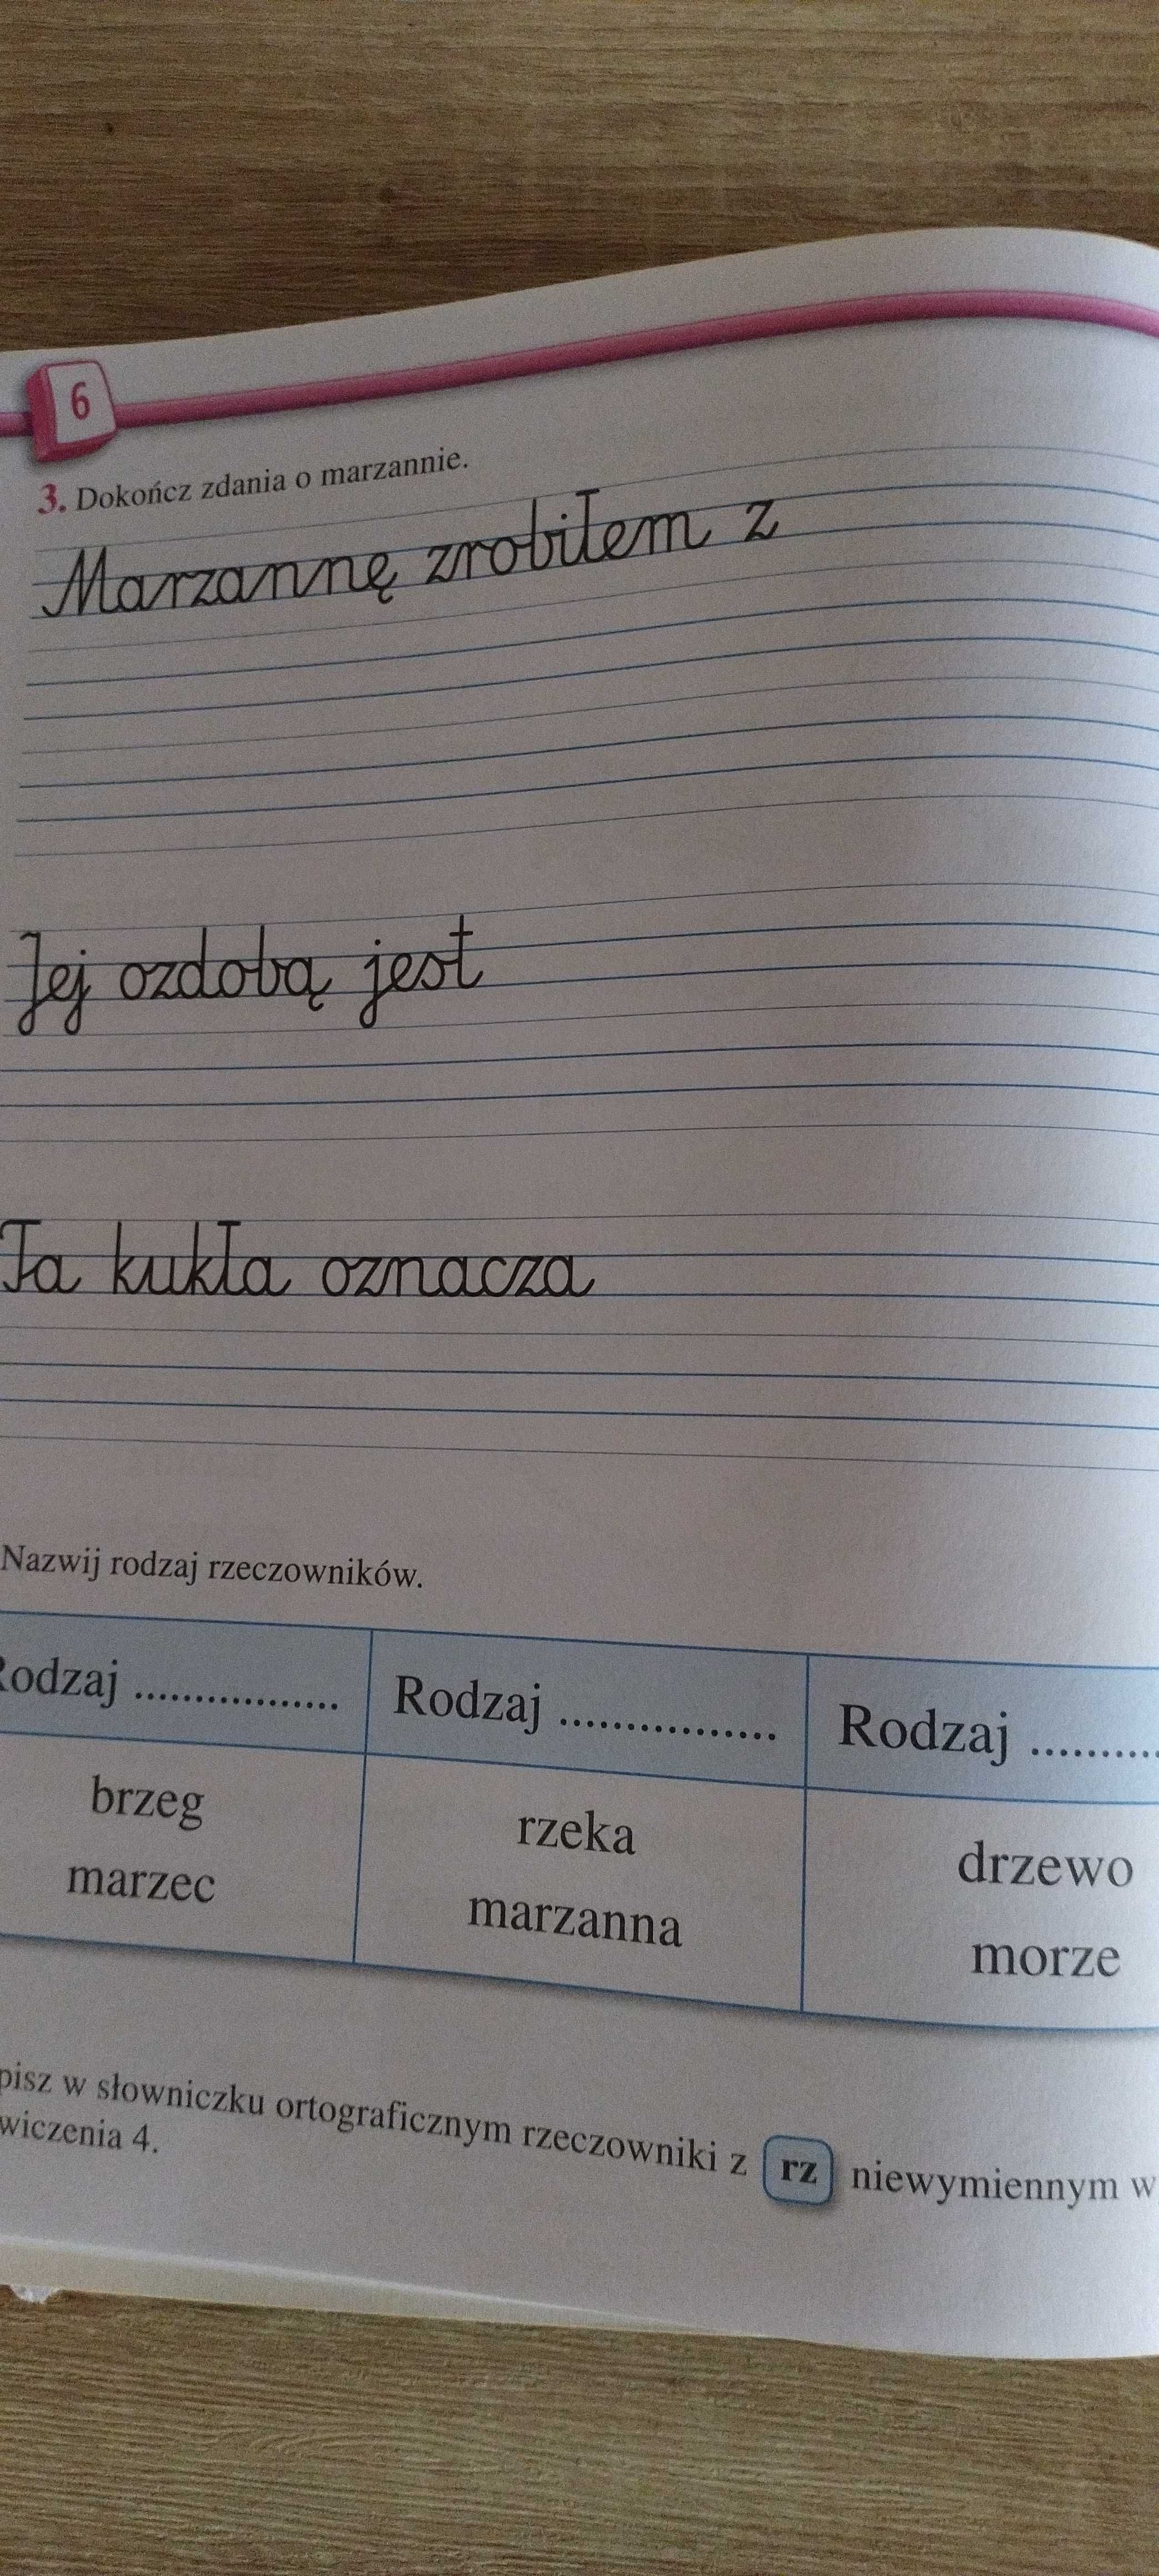 6
3. Dokończ zdania o marzannie.
Marzannę zrobiłem z
Jej ozdobą jest
Ta kukła oznacza
Nazwij rodzaj rzeczowników.
Rodzaj ................. Rodzaj ................. Rodzaj ..........
brzeg rzeka drzewo
marzec marzanna morze
pisz w słowniczku ortograficznym rzeczowniki z rz niewymiennym w
wiczenia 4.